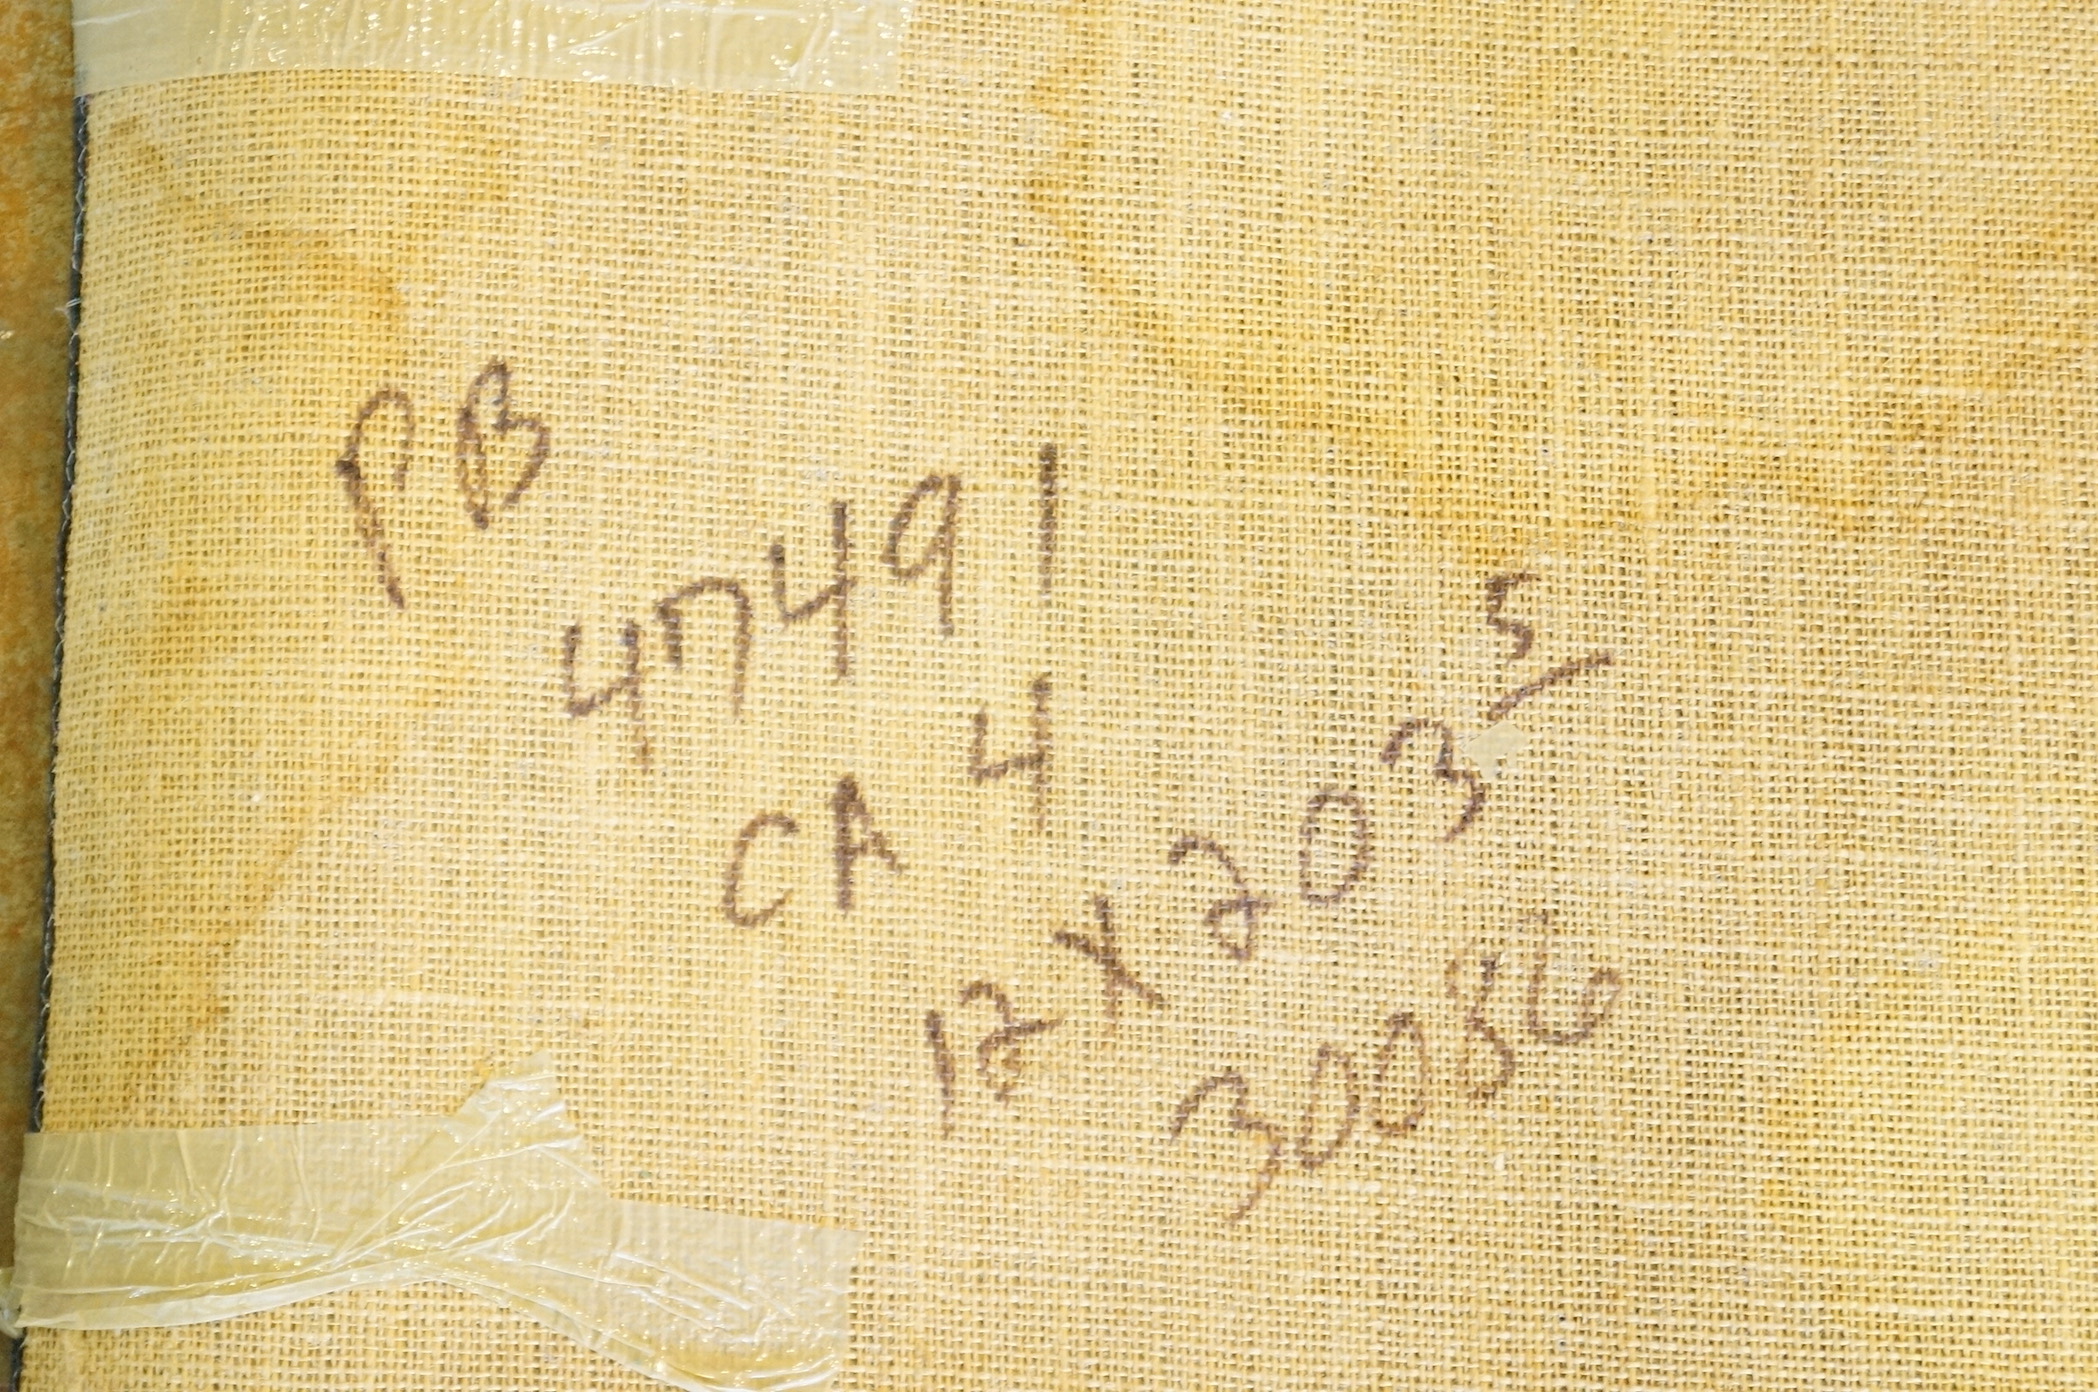 PB
47491
CA 4
12 X 203 5
30086